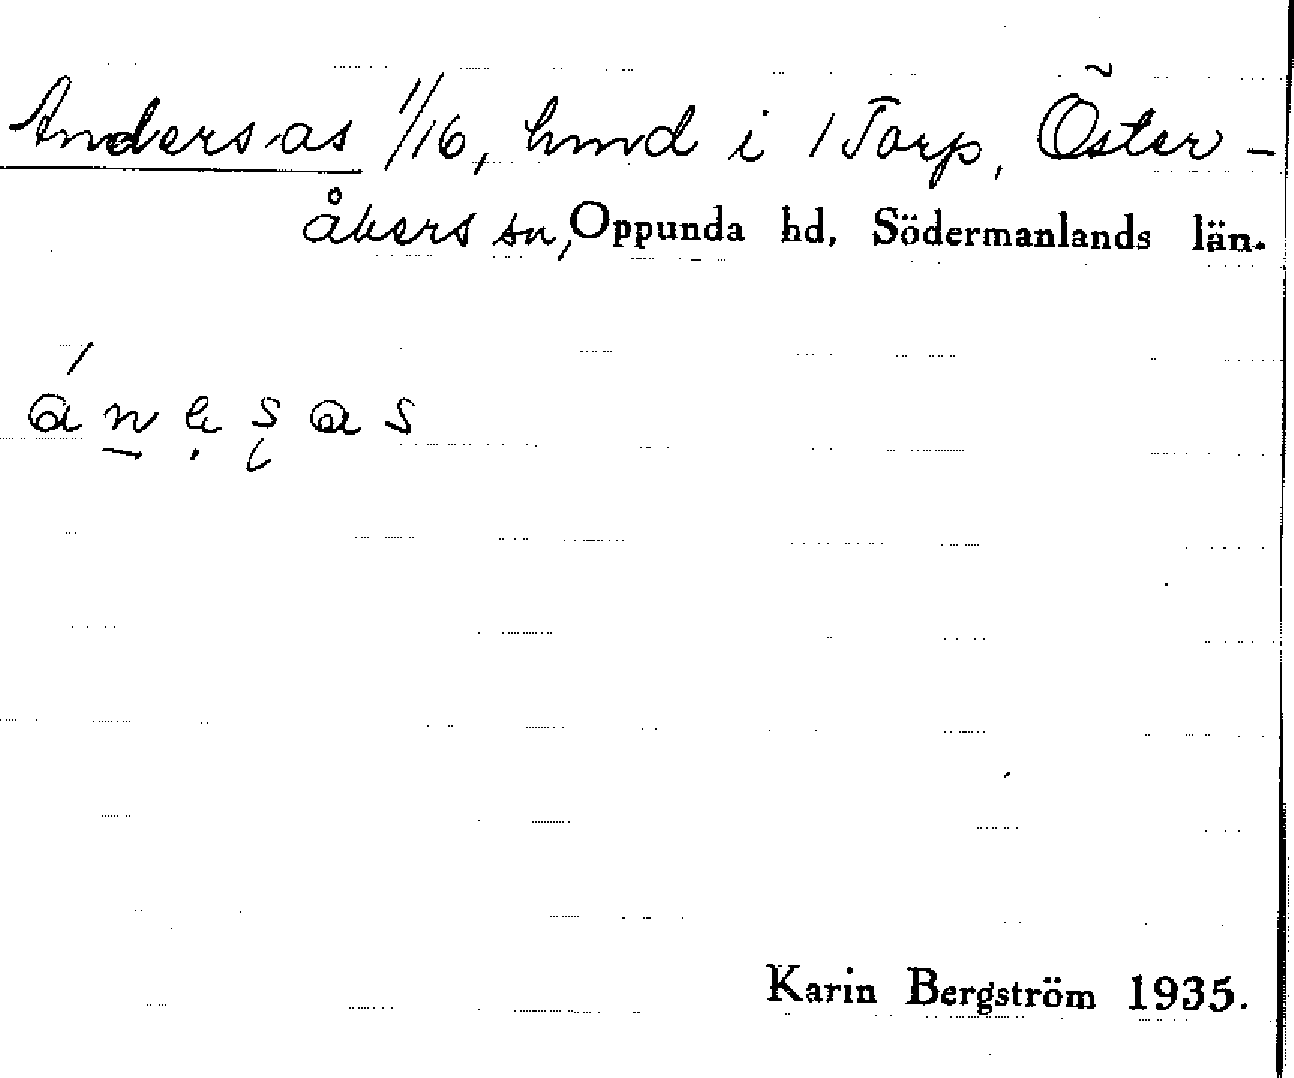 Andersas 1/16, hmd i 1 Torp, Öster-
åkers sn, Oppunda hd, Södermanlands län.
Karin Bergström 1935.